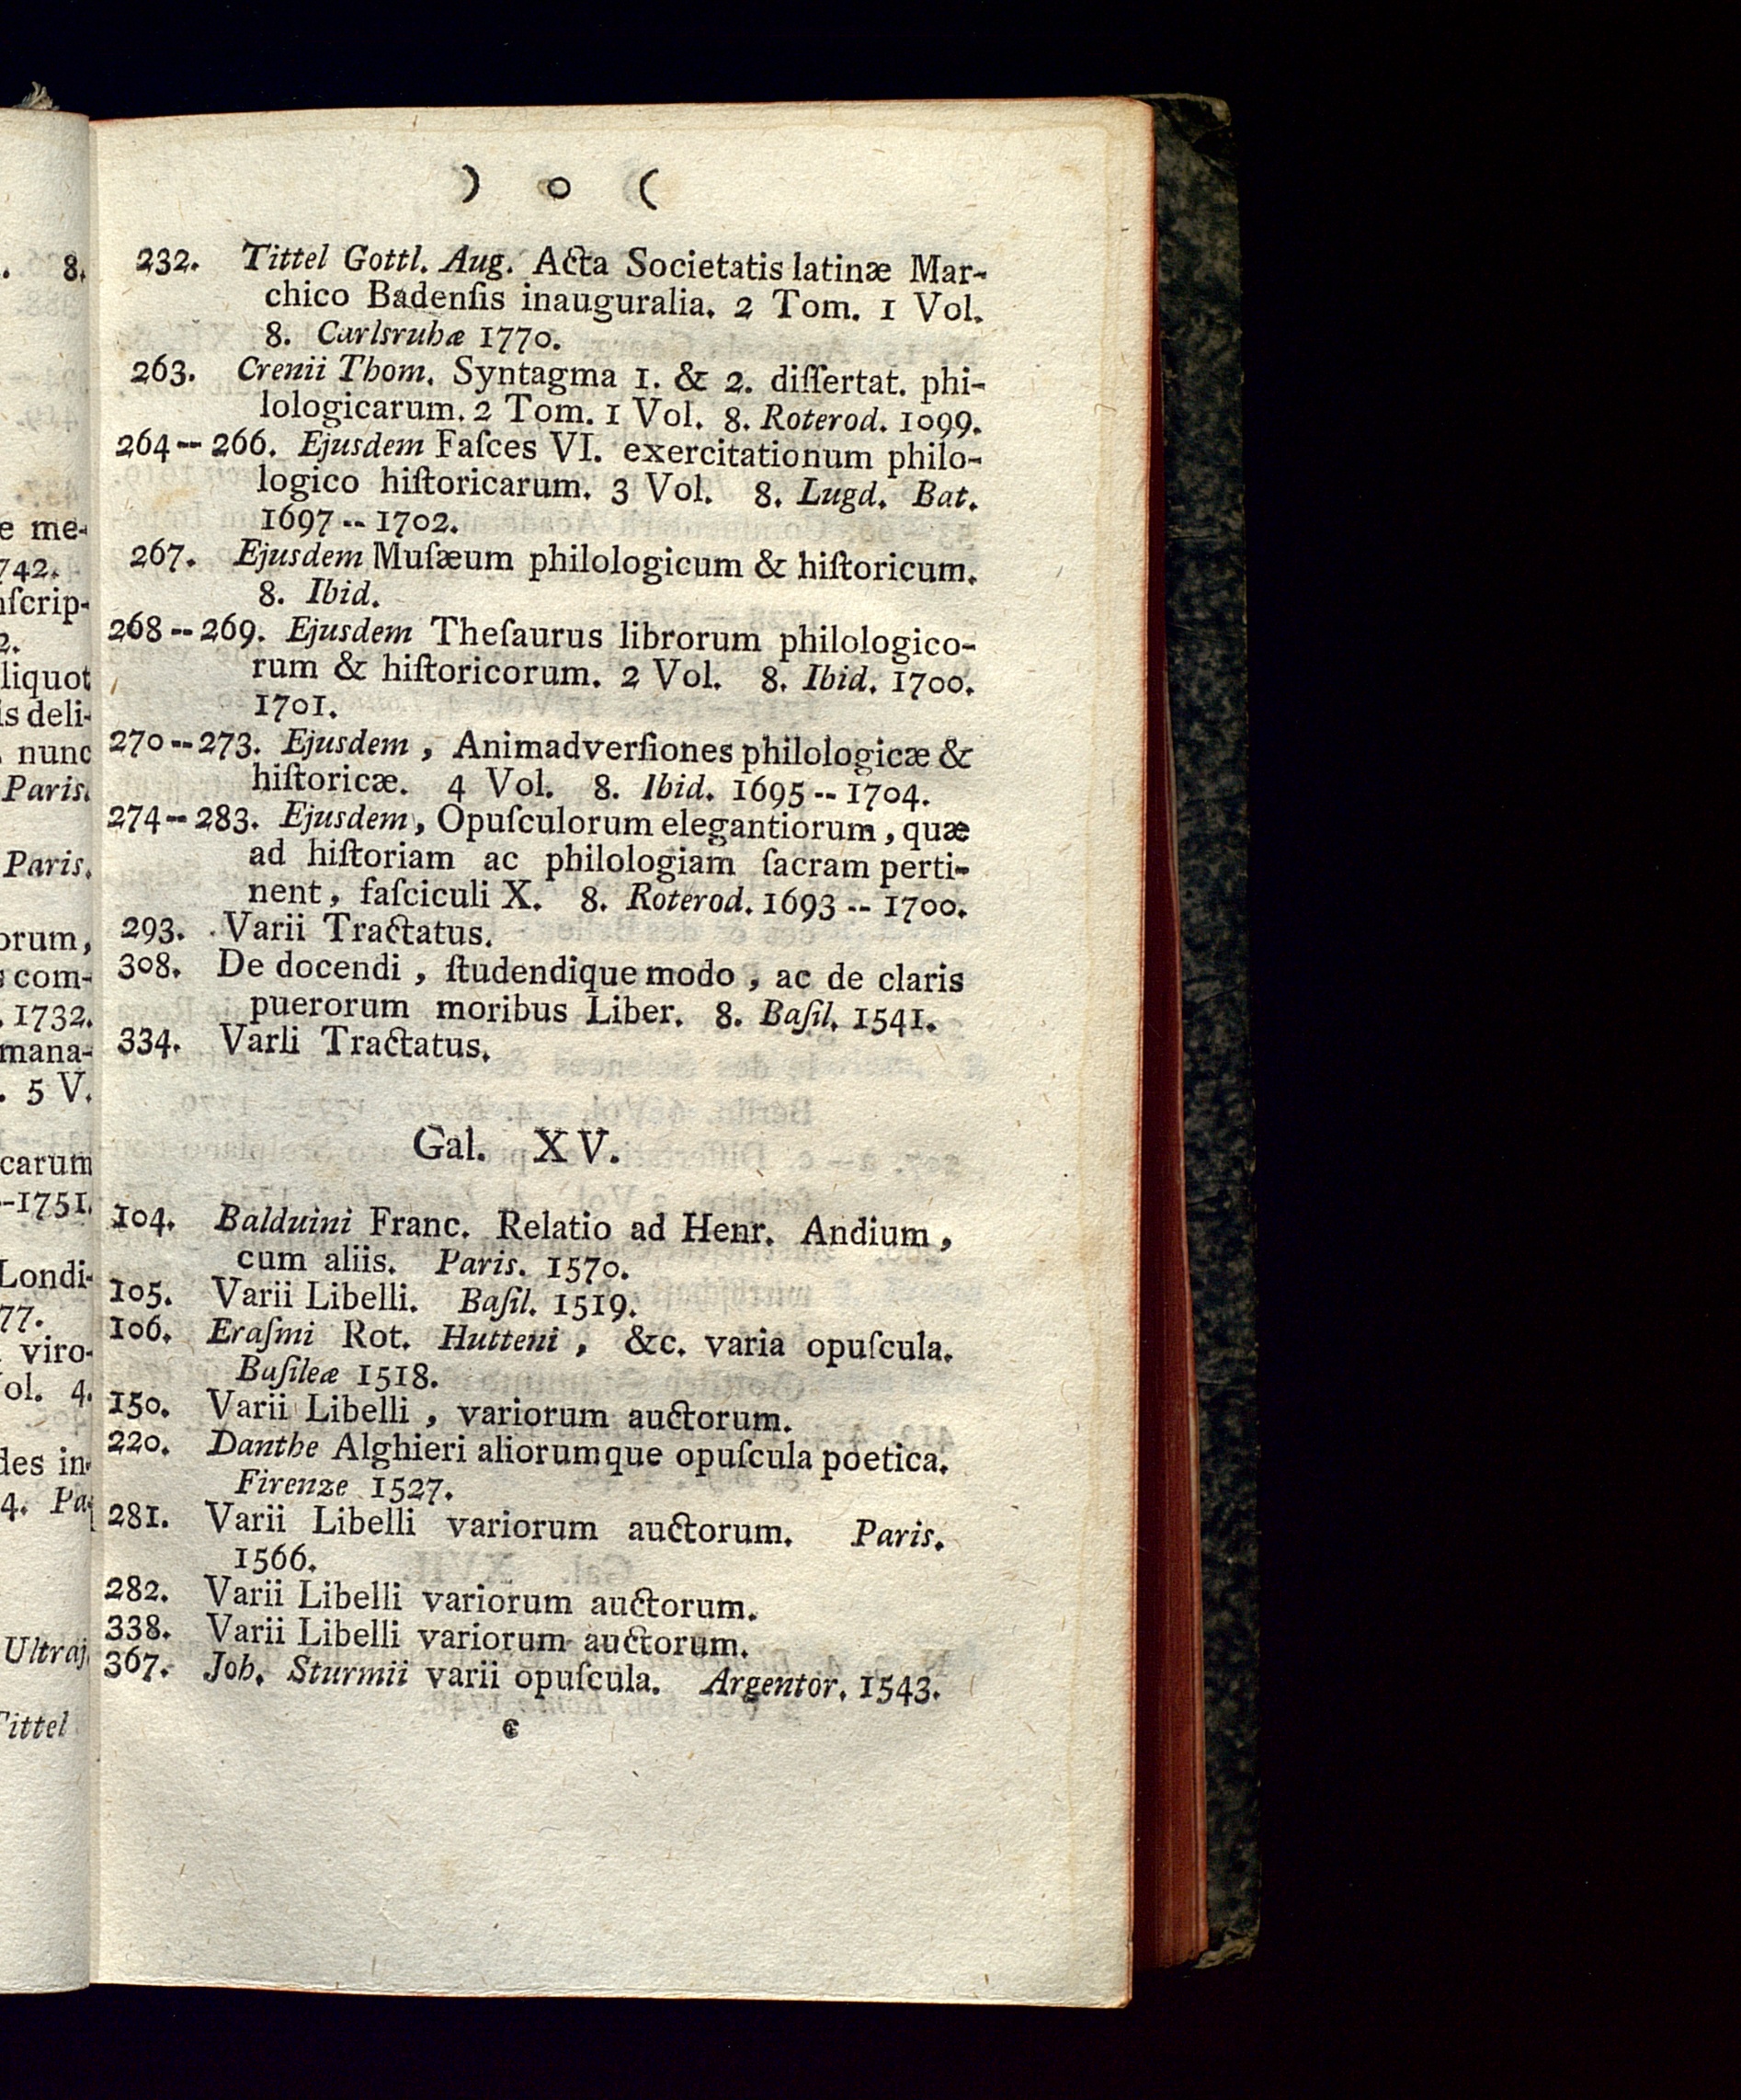 ) o (
232. Tittel Gottl. Aug. Acta Societatis latinæ Mar-
chico Badenſis inauguralia. 2 Tom. 1 Vol.
8. Carlsruhæ 1770.
263. Crenii Thom. Syntagma 1. & 2. diſſertat. phi-
lologicarum. 2 Tom. 1 Vol. 8. Roterod. 1099.
264--266. Ejusdem Faſces VI. exercitationum philo-
logico hiſtoricarum. 3 Vol. 8. Lugd. Bat.
1697--1702.
267. Ejusdem Muſæum philologicum & hiſtoricum.
8. Ibid.
268--269. Ejusdem Theſaurus librorum philologico-
rum & hiſtoricorum. 2 Vol. 8. Ibid. 1700.
1701.
270--273. Ejusdem, Animadverſiones philologicæ &
hiſtoricæ. 4 Vol. 8. Ibid. 1695--1704.
274--283. Ejusdem, Opuſculorum elegantiorum, quæ
ad hiſtoriam ac philologiam ſacram perti-
nent, faſciculi X. 8. Roterod. 1693--1700.
293. Varii Tractatus.
308. De docendi, ſtudendique modo, ac de claris
puerorum moribus Liber. 8. Baſil. 1541.
334. Varli Tractatus.
Gal. XV.
104. Balduini Franc. Relatio ad Henr. Andium,
cum aliis. Paris. 1570.
105. Varii Libelli. Baſil. 1519.
106. Eraſmi Rot. Hutteni, &c. varia opuſcula.
Baſileæ 1518.
150. Varii Libelli, variorum auctorum.
220. Danthe Alghieri aliorumque opuſcula poetica.
Firenze 1527.
281. Varii Libelli variorum auctorum. Paris.
1566.
282. Varii Libelli variorum auctorum.
338. Varii Libelli variorum auctorum.
367. Joh. Sturmii varii opuſcula. Argentor. 1543.
c